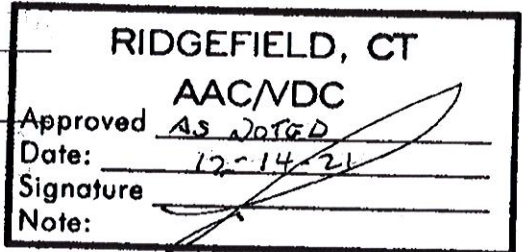 RIDGEFIELD, CT
AAC/VDC
Approved AS NOTED
Date: 12-14-21
Signature
Note: